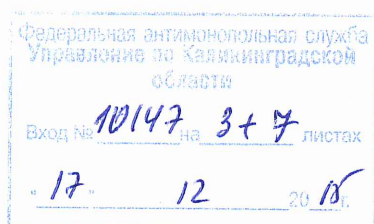 Федеральная антимонопольная служба
Управление по Калининградской
области
Вход № 10147 на 3+7 листах
"17" 12 2015 г.